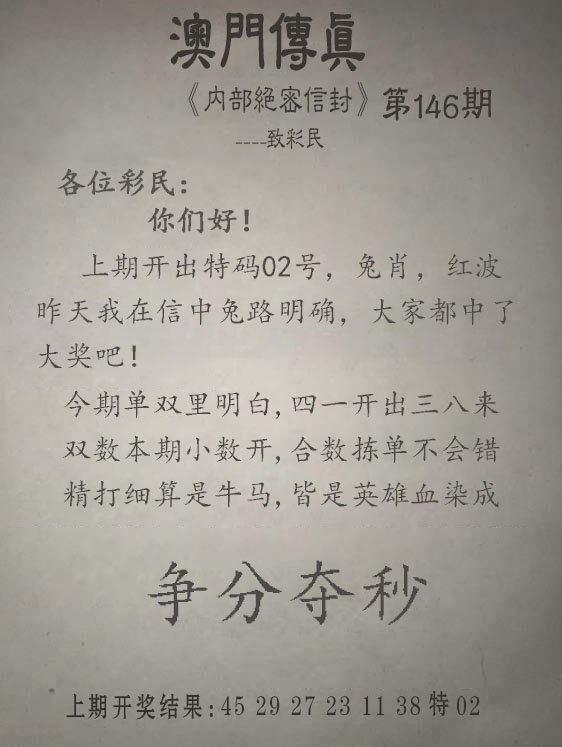 澳門傳眞
《内部絕密信封》第146期
----致彩民
各位彩民：
你们好！
上期开出特码02号，兔肖，红波
昨天我在信中兔路明确，大家都中了
大奖吧！
今期单双里明白,四一开出三八来
双数本期小数开,合数拣单不会错
精打细算是牛马,皆是英雄血染成
争分夺秒
上期开奖结果:45 29 27 23 11 38 特 02